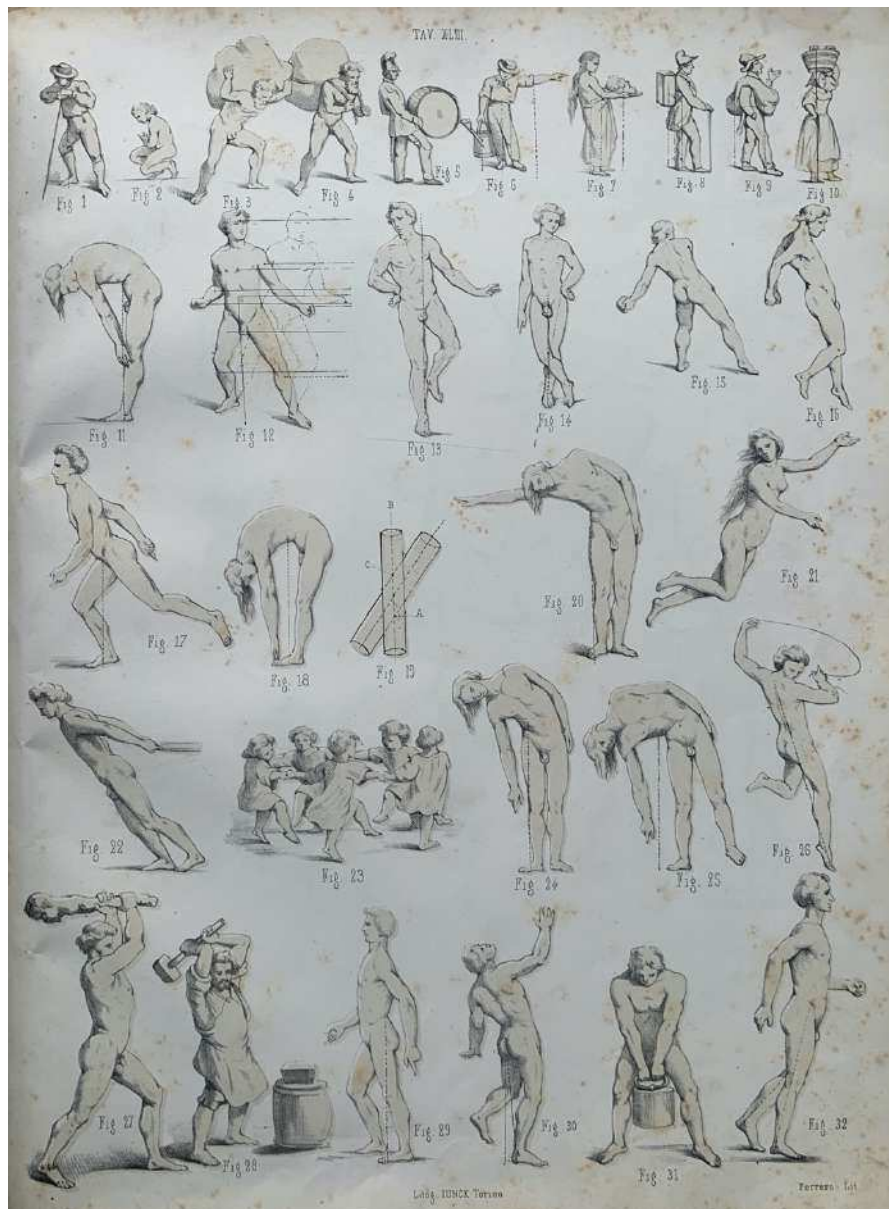 TAV. XLIII.
Fig 1
Fig 2
Fig 3
Fig 4
Fig 5
Fig 6
Fig 7
Fig. 8
Fig 9
Fig 10.
Fig 11
Fig 12
Fig 13
Fig 14
Fig. 15
Fig 16
Fig. 17
Fig. 18
B
C
A
Fig 19
Fig 20
Fig 21
Fig 22
Fig 23
Fig 24
Fig 25
Fig 26
Fig 27
Fig 28
Fig 29
Fig 30
Fig 31
Fig 32
Litog. JUNCK Torino
Ferrero Lit.